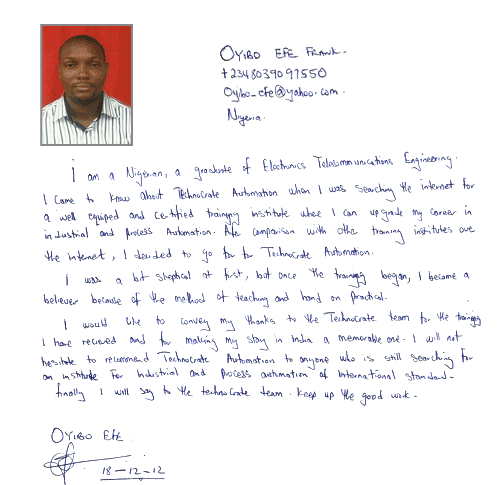 OYIBO EFE FRANK.
+2348039097550
Oyibo_efe@yahoo.com.
Nigeria.
I am a Nigerian, a graduate of Electronics Telecommunications Engineering.
I came to know about Technocrate Automation when I was searching the internet for
a well equiped and certified training institute where I can upgrade my career in
industrial and process Automation. After comparison with other training institutes over
the internet, I decided to go for Technocrate Automation.
I was a bit skeptical at first, but once the training began, I became a
believer because of the method of teaching and hand on practical.
I would like to convey my thanks to the Technocrate team for the training
I have recieved and for making my stay in India a memorable one. I will not
hesitate to recommend Technocrate Automation to anyone who is still searching for
an institute for Industrial and process automation of International standard.
finally I will say to the technocrate team. Keep up the good work.
OYIBO EFE
18-12-12